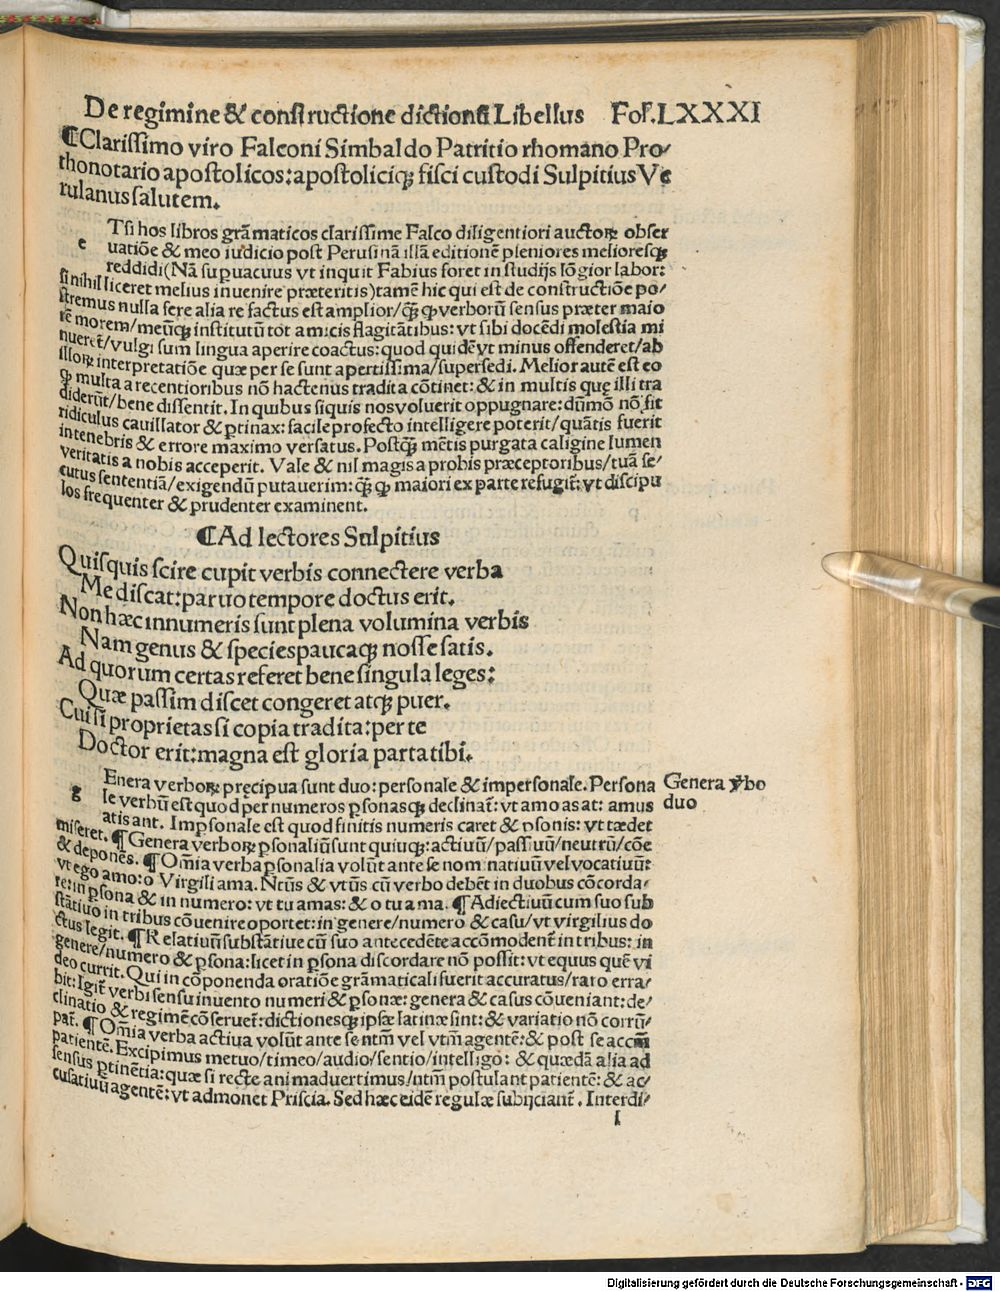 De regimine & constructione dictionũ Libellus Fol. LXXXI
¶Clarissimo viro Falconi Simbaldo Patritio rhomano Pro/
thonotario apostolicos: apostoliciqꝫ fisci custodi Sulpitius Ve
rulanus salutem.
Tsi hos libros grãmaticos clarissime Falco diligentiori auctoꝝ obser
e uatiõe & meo iudicio post Perusinã illã editionẽ pleniores melioresqꝫ
reddidi(Nã supuacuus vt inquit Fabius foret in studijs lõgior labor:
si nihil liceret melius inuenire præteritis)tamẽ hic qui est de constructiõe po/
stremus nulla fere alia re factus est amplior/qꝫ̃ ꝙ verborũ sensus præter maio
rẽ morem/meũqꝫ institutũ tot amicis flagitãtibus: vt sibi docẽdi molestia mi
nueret/vulgi sum lingua aperire coactus: quod quidẽ vt minus offenderet/ab
illoꝝ interpretatiõe quæ per se sunt apertissima/supersedi. Melior autẽ est eo
ꝙ multa a recentioribus nõ hactenus tradita cõtinet: & in multis quę illi tra
diderũt/bene dissentit. In quibus siquis nos voluerit oppugnare: dũmõ nõ fit
ridiculus cauillator & ꝑtinax: facile profecto intelligere poterit/quãtis fuerit
intenebris & errore maximo versatus. Postqꝫ̃ mẽtis purgata caligine lumen
veritatis a nobis acceperit. Vale & nil magis a probis præceptoribus/tuã se/
cutus sententiã/exigendũ putauerim: qꝫ̃ ꝙ maiori ex parte refugiũt: vt discipu
los frequenter & prudenter examinent.
¶Ad lectores Sulpitius
Quisquis scire cupit verbis connectere verba
Me discat: paruo tempore doctus erit.
Non hæc innumeris sunt plena volumina verbis
Nam genus & species paucaqꝫ nosse satis.
Ad quorum certas referet bene singula leges:
Quæ passim discet congeret atqꝫ puer.
Cui si proprietas si copia tradita: per te
Doctor erit: magna est gloria parta tibi.
Enera verboꝝ pręcipua sunt duo: personale & impersonale. Persona
Genera ꝟbo
g le verbũ est quod per numeros ꝑsonasqꝫ declinat̃: vt amo as at: amus
duo
atis ant. Impsonale est quod finitis numeris caret & ꝑsonis: vt tædet
miseret. ¶Genera verboꝝ ꝑsonaliũ sunt quinqꝫ: actiuũ/passiuũ/neutrũ/cõe
& deponẽs. ¶Oĩa verba ꝑsonalia volũt ante se nominatiuũ vel vocatiuũ:
vt ego amo: o Virgili ama. Ntũs & vtũs cũ verbo debẽt in duobus cõcorda/
re: in ꝑsona & in numero: vt tu amas: & o tu ama. ¶Adiectiuũ cum suo sub
stãtiuo in tribus cõuenire oportet: in genere/numero & casu/vt virgilius do
ctus legit. ¶Relatiuũ substãtiue cũ suo antecedẽte accõmodent̃ in tribus: in
genere/numero & ꝑsona: licet in ꝑsona discordare nõ possit: vt equus quẽ vi
deo currit. Qui in cõponenda oratiõe grãmaticali fuerit accuratus/raro erra/
bit: Igit̃ verbi sensu inuento numeri & ꝑsonæ: genera & casus cõueniant: de/
clinatio & regimẽ cõseruet̃: dictionesqꝫ ipsæ latinæ sint: & variatio nõ corrũ/
pat̃. ¶Oĩa verba actiua volũt ante se ntm̃ vel vtm̃ agentẽ: & post se accm̃
patientẽ. Excipimus metuo/timeo/audio/sentio/intelligo: & quædã alia ad
sensus ꝑtinẽtia: quæ si recte animaduertimus/ntm̃ postulant patientẽ: & ac/
cusatiuũ agentẽ: vt admonet Priscia. Sed hæc eidẽ regulæ subijciant̃. Interdi/
l
Digitalisierung gefördert durch die Deutsche Forschungsgemeinschaft - DFG